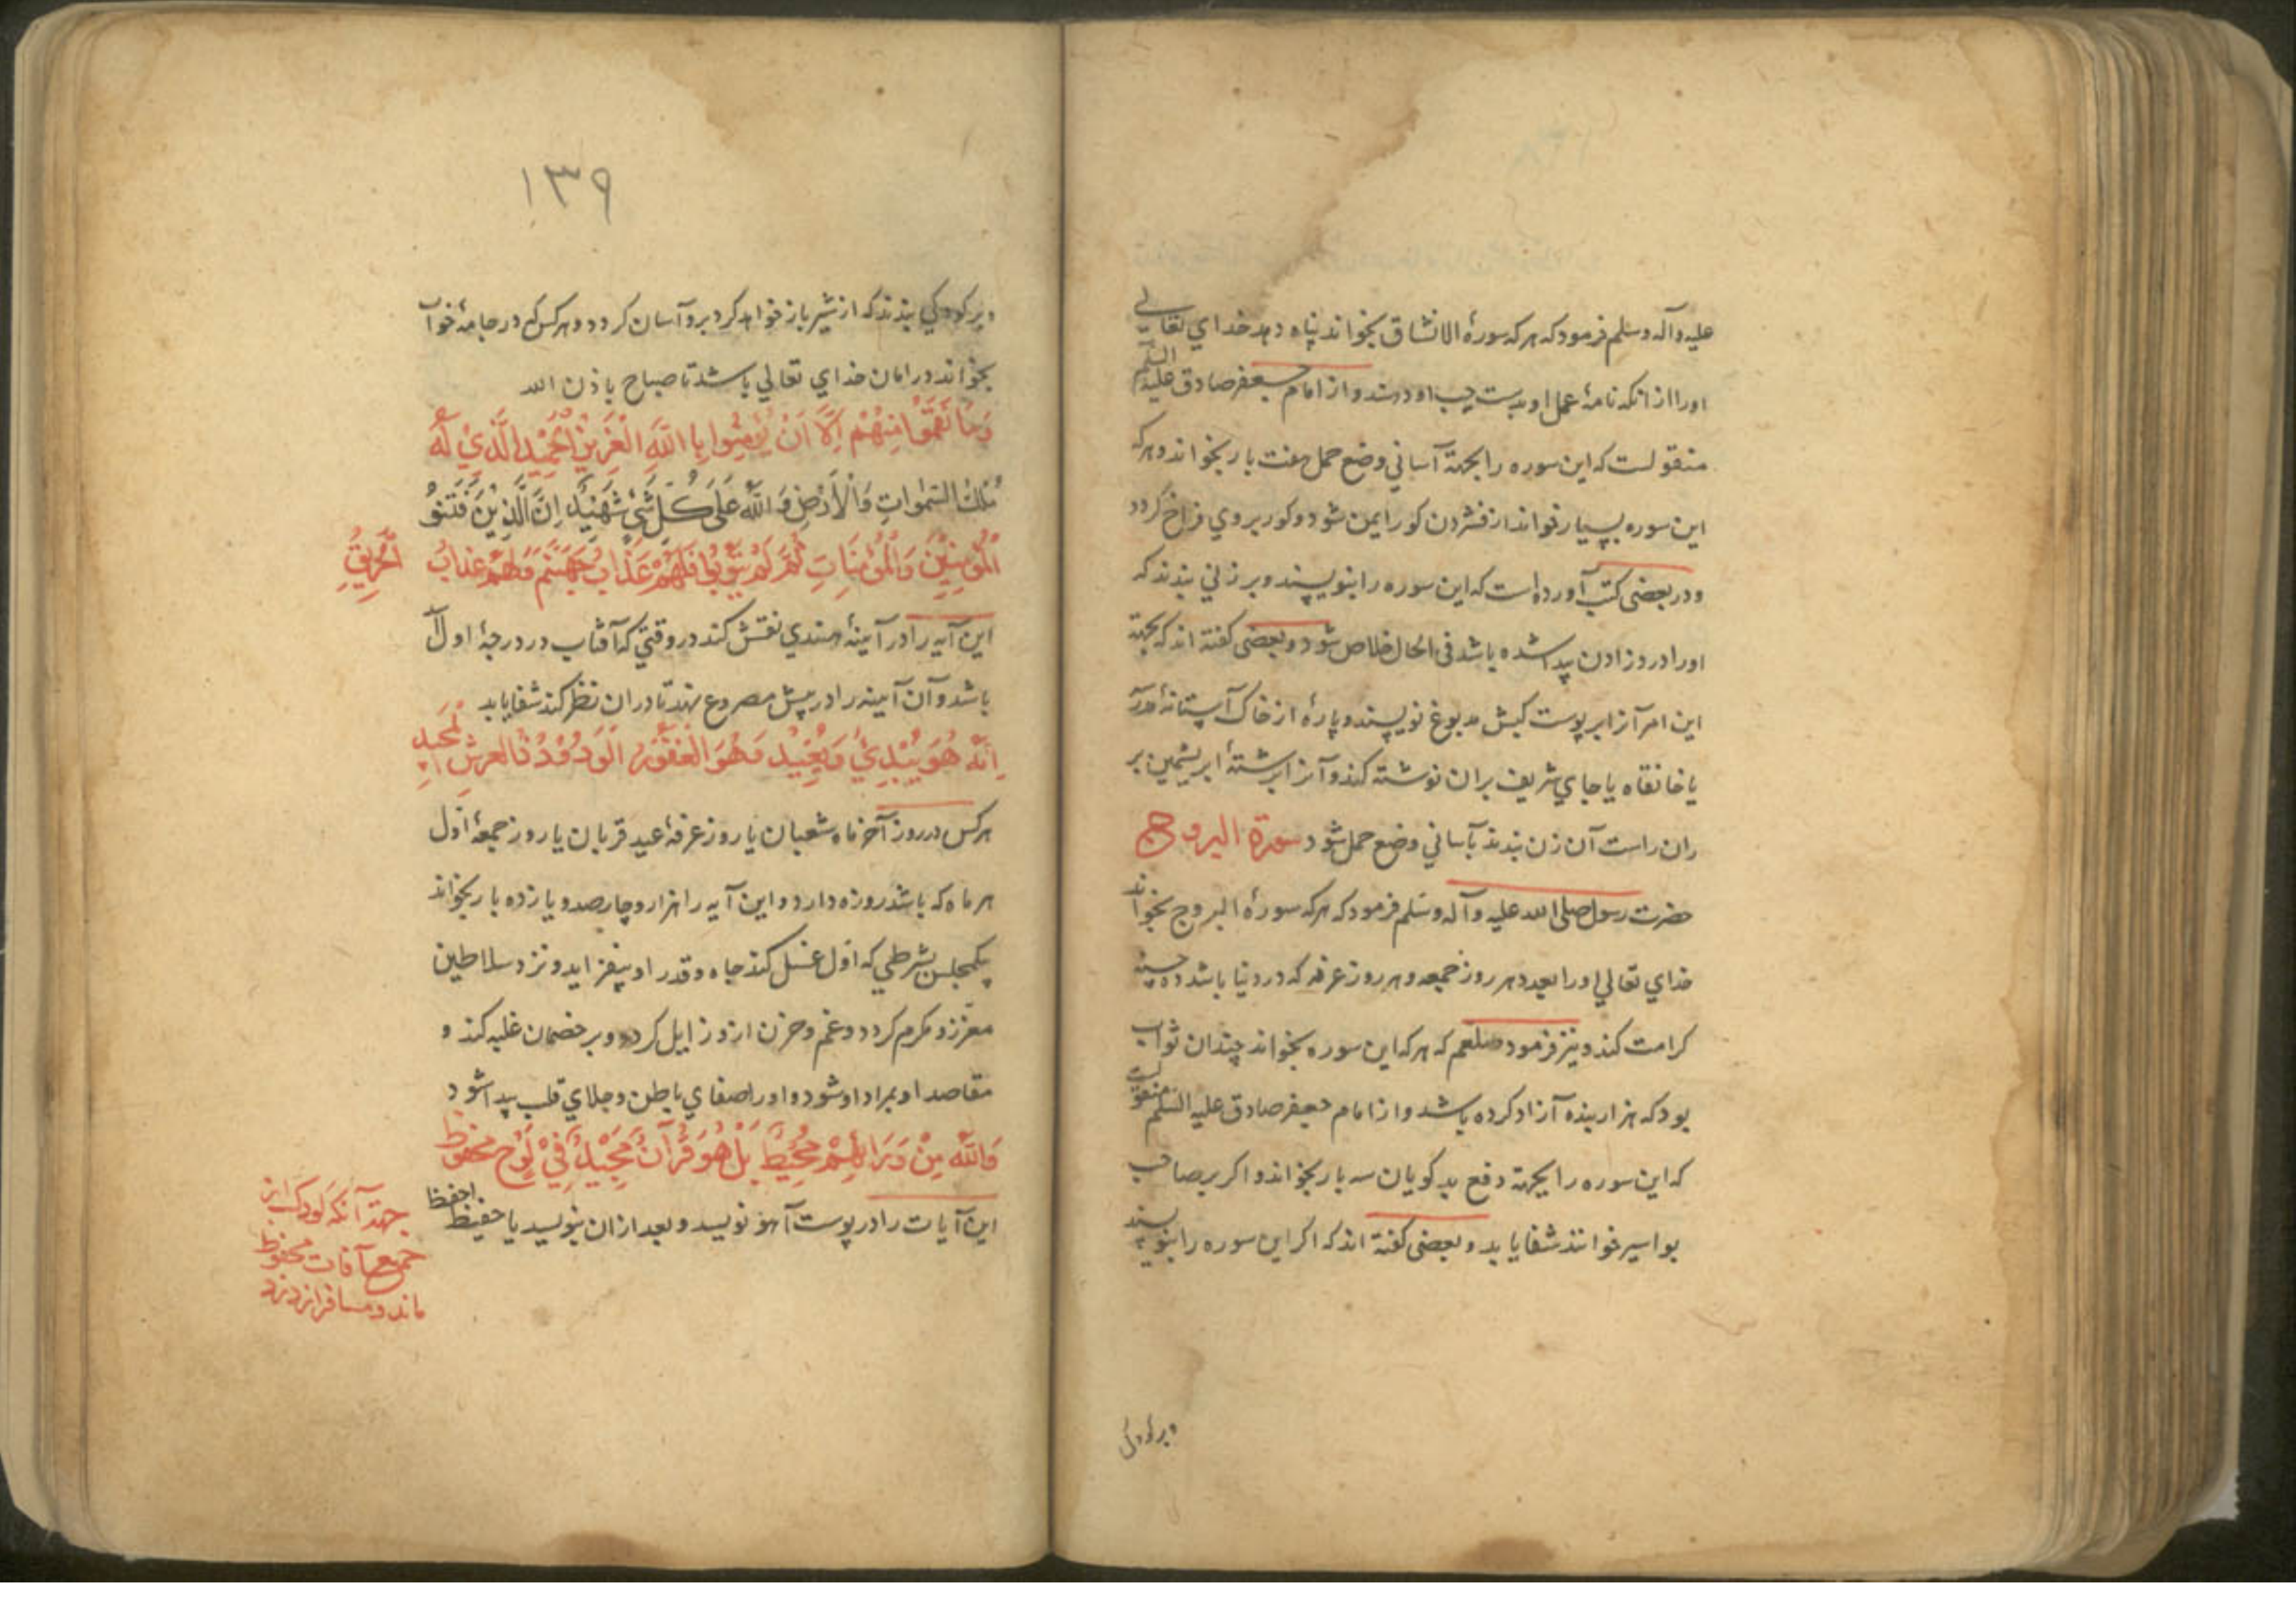 علیه وآله وسلم فرمود که هر که سورهٔ الانشاق بخواند پناه دهد خدای تعالی
اورا از انکه نامهٔ عمل او بدست چپ او دهند و از امام جعفر صادق علیه السلم
منقولست که این سوره را بجهة آسانی وضع حمل هفت بار بخواند و هر که
این سوره بسیار خواند از فشردن کور ایمن شود و کور بروی فراخ کردد
و در بعضی کتب آورده است که این سوره را بنویسند و بر زنی بندند که
اورا درو زادن پیدا شده باشد فی الحال خلاص شود و بعضی کفته اند که بجهة
این امر آنرا بر پوست کبش مدبوغ نویسند و پارهٔ از خاک آستانهٔ
یا خانقاه یا جای شریف بران نوشته کند و آنرا برشتهٔ ابریشمین بر
ران راست آن زن بندند بآسانی وضع حمل شود سورة البروج
حضرت رسول صلی الله علیه وآله وسلم فرمود که هر که سورهٔ البروج بخواند
خدای تعالی اورا بعدد هر روز جمعه و هر روز عرفه که در دنیا باشد ده حسنه
کرامت کند و نیز فرمود صلعم که هر که این سوره بخواند چندان ثواب
بود که هزار بنده آزاد کرده باشد و از امام جعفر صادق علیه السلم منقولست
که این سوره را بجهة دفع بد کویان سه بار بخواند و اکر بر صاحب
بواسیر خوانند شفا یابد و بعضی کفته اند که اکر این سوره را بنویسند
و بر کودکی
۱۳۹
و بر کودکی بندند که از شیر باز خواهد کرد برو آسان کردد و هر کس که در جامهٔ خواب
بخواند در امان خدای تعالی باشد تا صباح باذن الله
وَمَا نَقَمُوا مِنْهُمْ اِلَّا اَنْ يُؤْمِنُوا بِا اللّٰهِ الْعَزِيزِ الْحَمِيْدِ الَّذِيْ لَهُ
مُلْكُ السَّمٰوَاتِ وَالْاَرْضِ وَاللّٰهُ عَلَى كُلِّ شَيْءٍ شَهِيْدٌ اِنَّ الَّذِيْنَ فَتَنُوا
الْمُؤْمِنِيْنَ وَالْمُؤْمِنَاتِ ثُمَّ لَمْ يَتُوْبُوا فَلَهُمْ عَذَابُ جَهَنَّمَ وَلَهُمْ عَذَابُ الْحَرِيْقِ
این آیه را در آیینهٔ هندی نقش کند در وقتی که آفتاب در درجهٔ اول
باشد و آن آیینه را در پیش مصروع نهند تا دران نظر کند شفا یابد
اِنَّهُ هُوَ يُبْدِئُ وَيُعِيْدُ وَهُوَ الْغَفُوْرُ الْوَدُوْدُ ذُالعرشِ الْمَجِيدِ
هر کس در روز آخر ماه شعبان یا روز عرفهٔ عید قربان یا روز جمعهٔ اول
هر ماه که باشد روزه دارد و این آیه را هزار و چارصد و یازده بار بخواند
بیکمجلس بشرطی که اول غسل کند جاه و قدر او بیفزاید و نزد سلاطین
معزز و مکرم کردد و غم و حزن ازو زایل کردد و بر خصمان غلبه کند و
مقاصد او بمراد او شود و اورا صفای باطن و جلای قلب پیدا شود
وَاللّٰهُ مِنْ وَرَائِهِمْ مُحِيْطٌ بَلْ هُوَ قُرْآنٌ مَجِيْدٌ فِيْ لَوْحٍ محفوظ
این آیات را در پوست آهو نویسد و بعد ازان بنویسد یا حفیظ احفظ
جهة آنکه کودک از
جمیع آفات محفوظ
ماند و مسافر از دزد